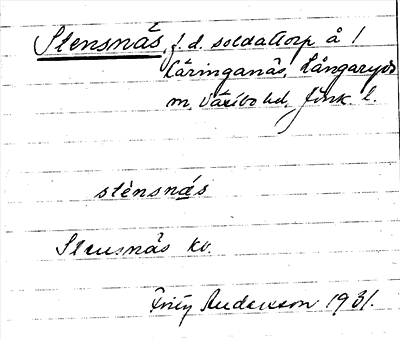 Stensnäs, f.d. soldattorp å 1
Käringanäs, Långaryds
sn, Västbo hd, Jönk. l.
stènsnäs
Stensnäs kv.
Anderson 1931.